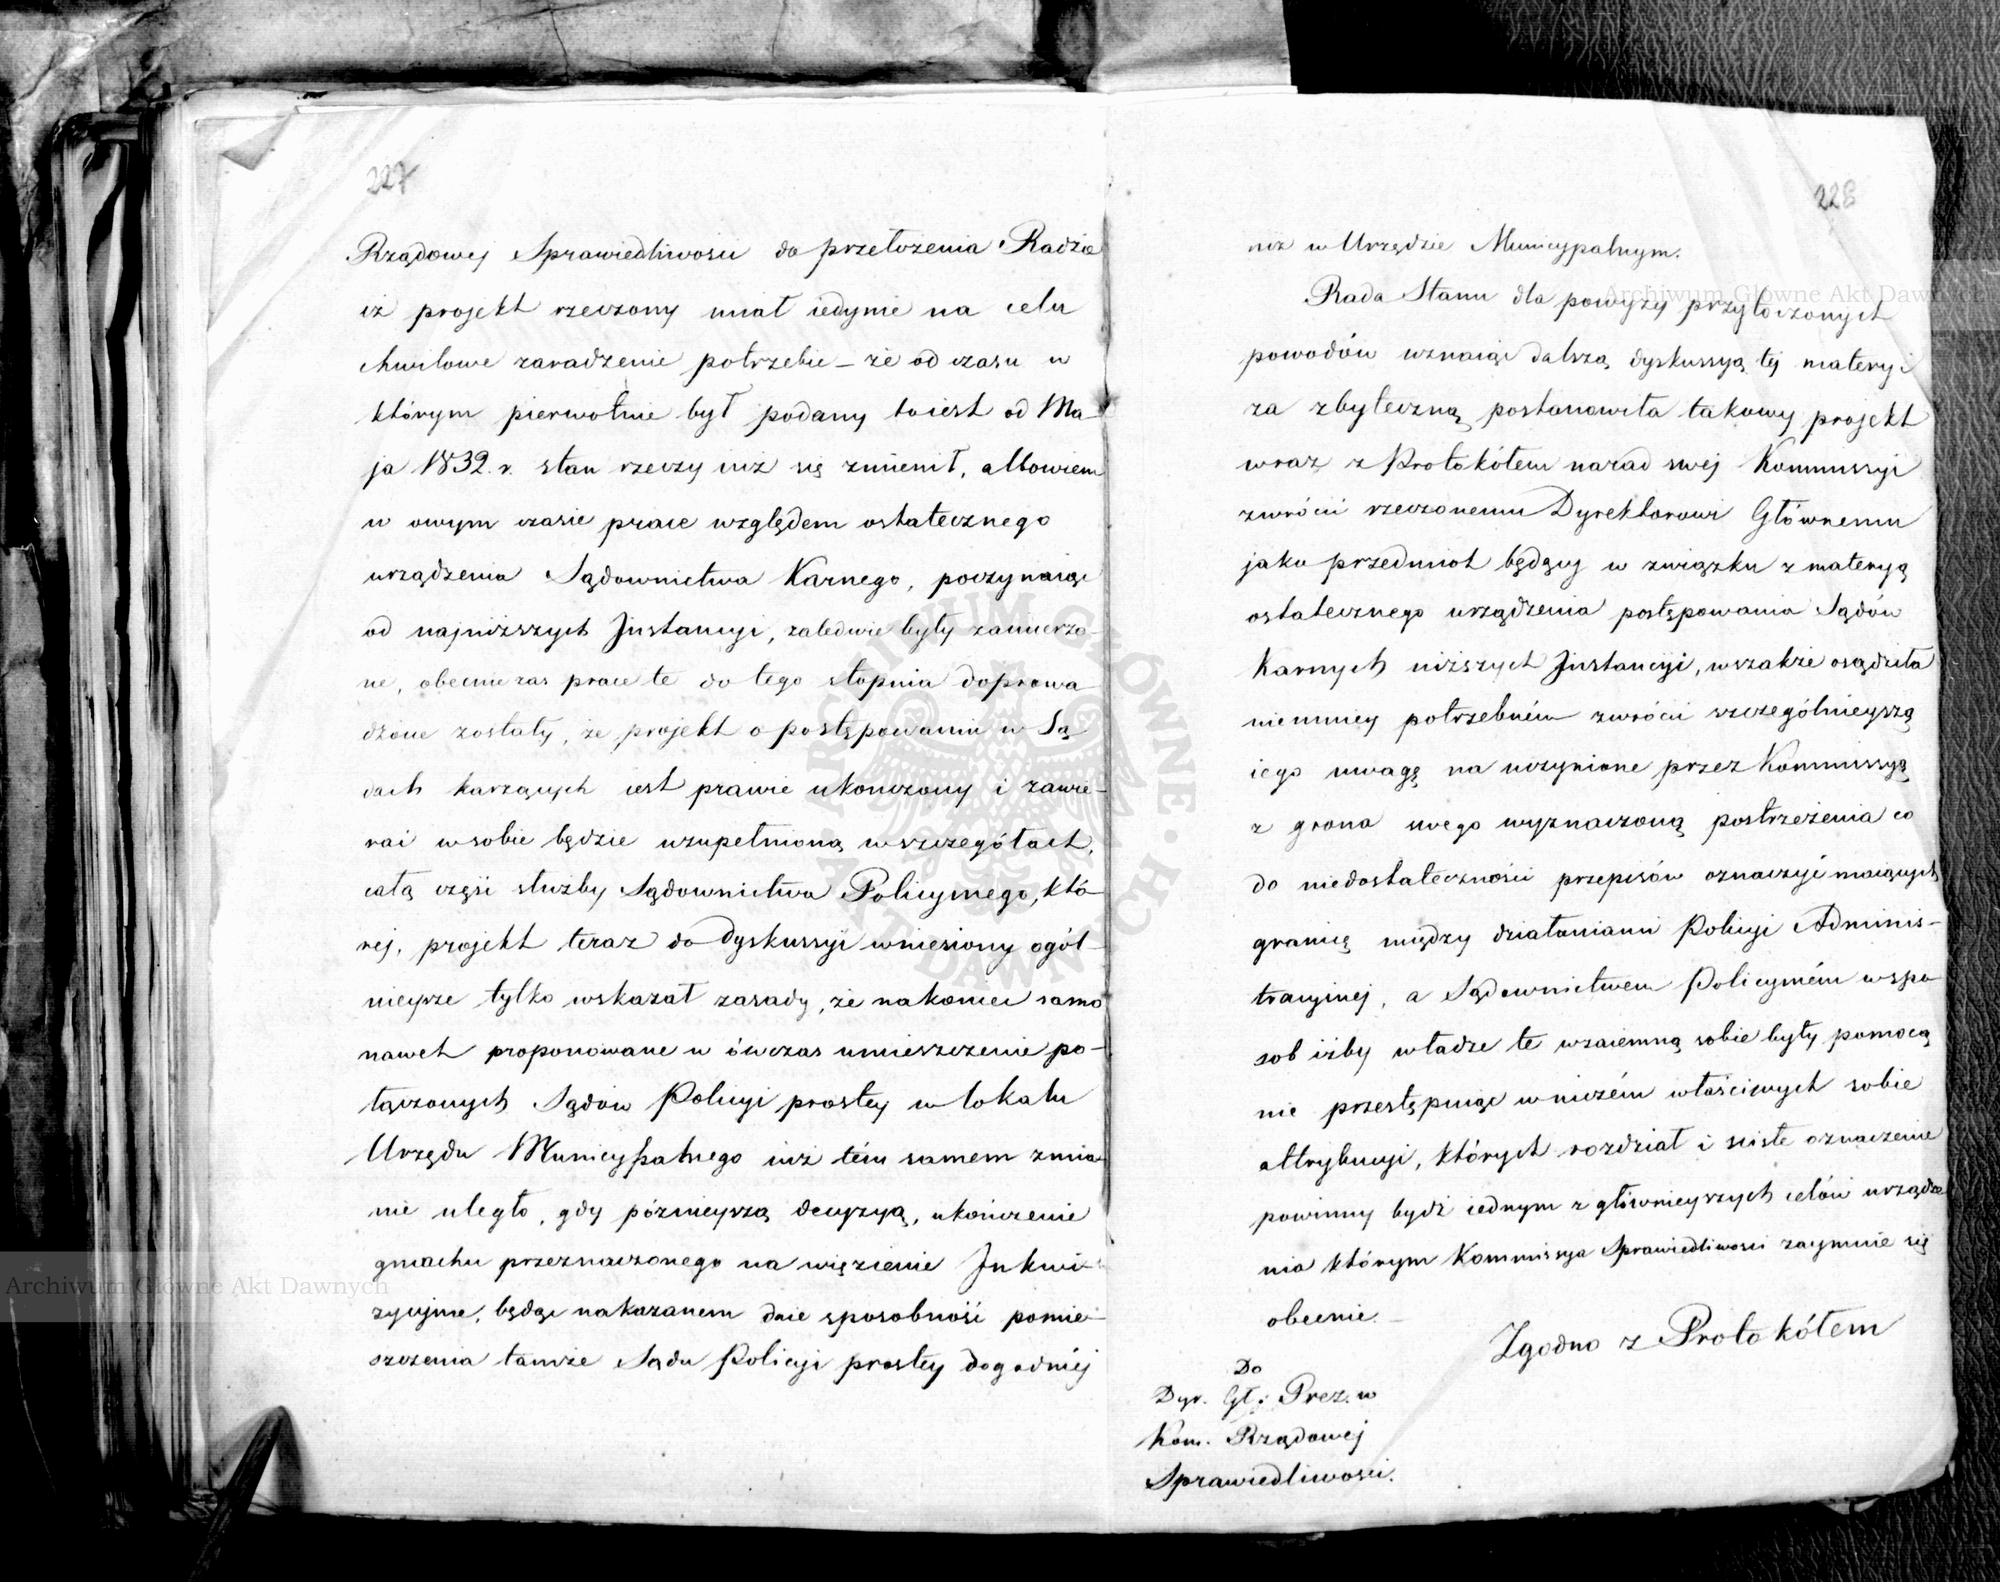 227
Rządowej Sprawiedliwości do przełożenia Radzie
iż projekt rzeczony miał iedynie na celu
chwilowe zaradzenie potrzebie – że od czasu w
którym pierwotnie był podany to iest od Ma-
ja 1832. r. stan rzeczy iuż się zmienił, albowiem
w owym czasie prace względem ostatecznego
urządzenia Sądownictwa Karnego, poczynaiąc
od najniższych Instancyi, zaledwie były zamierzo-
ne, obecnie zas prace te do tego stopnia doprowa-
dzone zostały, że projekt o postępowaniu w Są-
dach karzących iest prawie ukończony i zawie-
rać w sobie będzie uzupełnioną w szczegółach,
całą część służby Sądownictwa Policyinego, któ-
rej, projekt teraz do dyskussyi wniesiony ogól-
nieysze tylko wskazał zasady, że nakoniec samo
nawet proponowane w ówczas umieszczenie po-
łączonych Sądów Policyi prostey w lokalu
Urzędu Municypalnego iuż tém samem zmia-
nie uległo, gdy późnieyszą decyzyą, ukończenie
gmachu przeznaczonego na więzienie Inkwi-
zycyjne, będąc nakazanem daie sposobność pomie-
szczenia tamże Sądu Policyi prostey dogodniéj
228
niż w Urzędzie Municypalnym.
Rada Stanu dla powyżey przytoczonych
powodów uznaiąc dalszą dyskussyą téj materyi
za zbyteczną postanowiła takowy projekt
wraz z Protokółem narad swéj Kommissyi
zwrócić rzeczonemu Dyrektorowi Głównemu
jako przedmiot będący w związku z materyą
ostatecznego urządzenia postępowania Sądów
Karnych niższych Instancyi, wszakże osądziła
niemniey potrzebném zwrócić szczególnieyszą
iego uwagę na uczynione przez Kommissyą
z grona swego wyznaczoną postrzeżenia co
do niedostateczności przepisów oznaczyć maiących
granicę między działaniami Policyi Adminis-
tracyjnej, a Sądownictwem Policyjném w spo-
sob iżby władze te wzaiemną sobie były pomocą
nie przestępuiąc w niczém właściwych sobie
attrybucyi, których rozdział i ścisłe oznaczenie
powinny bydź iednym z głównieyszych celów urządze-
nia którym Kommissya Sprawiedliwości zaymuie się
obecnie.
Zgodno z Protokółem
Do
Dyr. Gł: Prez. w
Kom. Rządowej
Sprawiedliwości.
Archiwum Główne Akt Dawnych
Archiwum Główne Akt Dawnych
ARCHIWUM GŁÓWNE AKT DAWNYCH